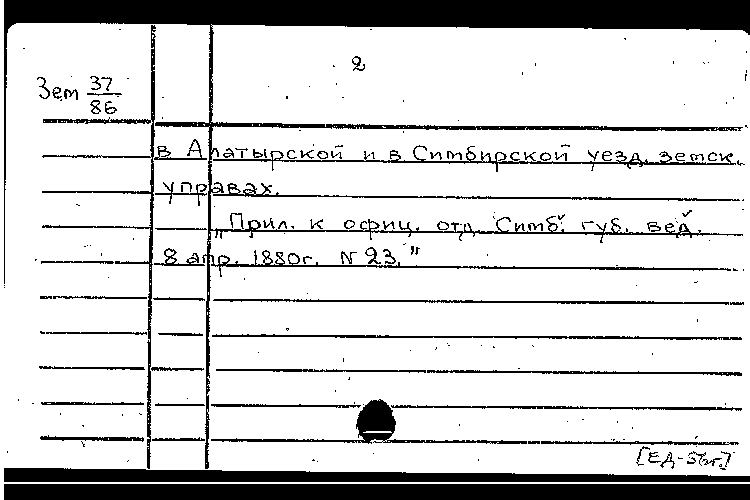 2
Зем 37/86
в Алатырской и в Симбирской уезд. земск.
управах.
„Прил. к офиц. отд. Симб. губ. вед.
8 апр. 1880г. N 23."